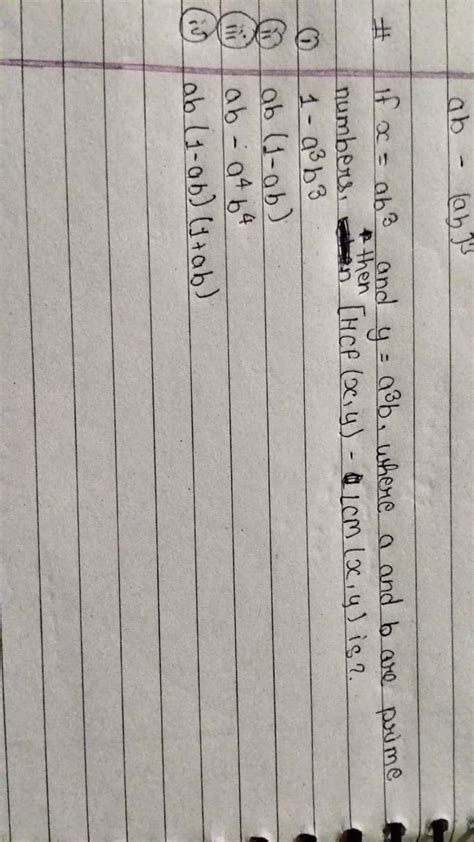 ab - (ab)
# If x = ab³ and y = a³b, where a and b are prime
numbers, then [HCF (x,y) - LCM (x,y) is?
(i) 1 - a³b³
(ii) ab (1-ab)
(iii) ab - a⁴b⁴
(iv) ab (1-ab) (1+ab)